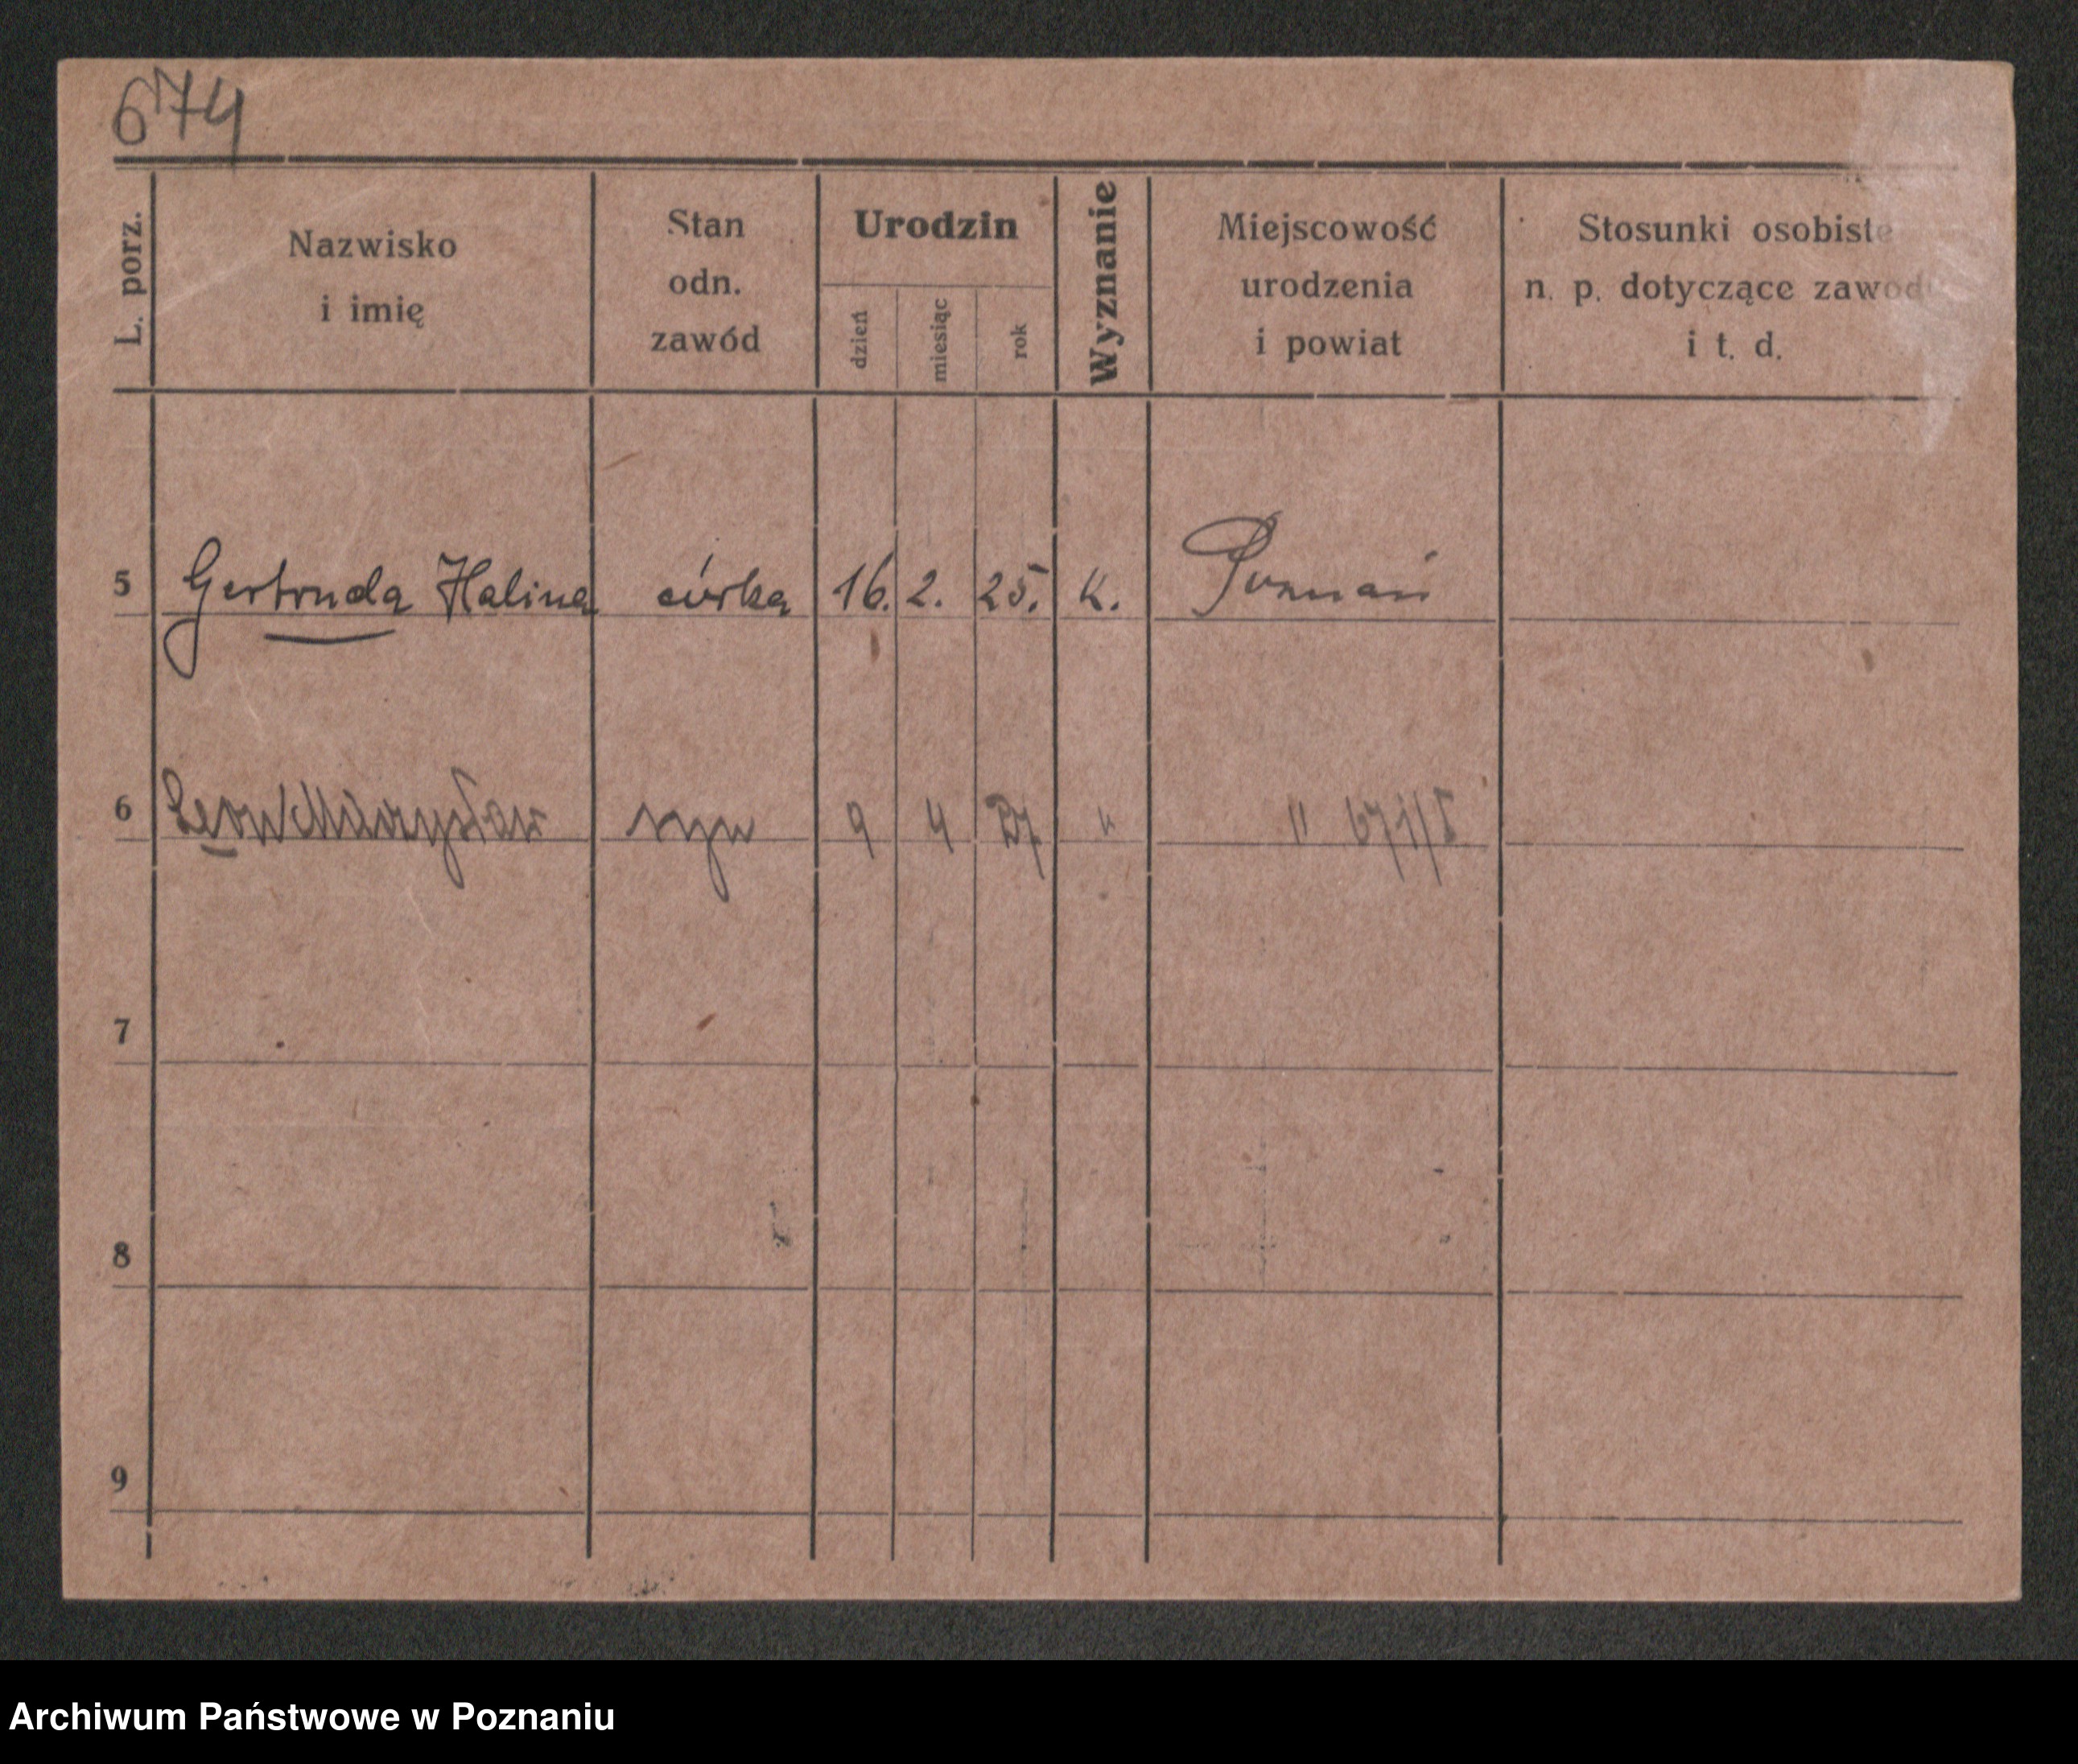 674
L. porz.
Nazwisko
i imię
Stan
odn.
zawód
Urodzin
dzień
miesiąc
rok
Wyznanie
Miejscowość
urodzenia
i powiat
Stosunki osobiste
n. p. dotyczące zawodu
i t. d.
5 Gertruda Halina córka 16. 2. 25. K. Poznań
6 Leon Mieczysław syn 9 4 27 " "
7
8
9
Archiwum Państwowe w Poznaniu